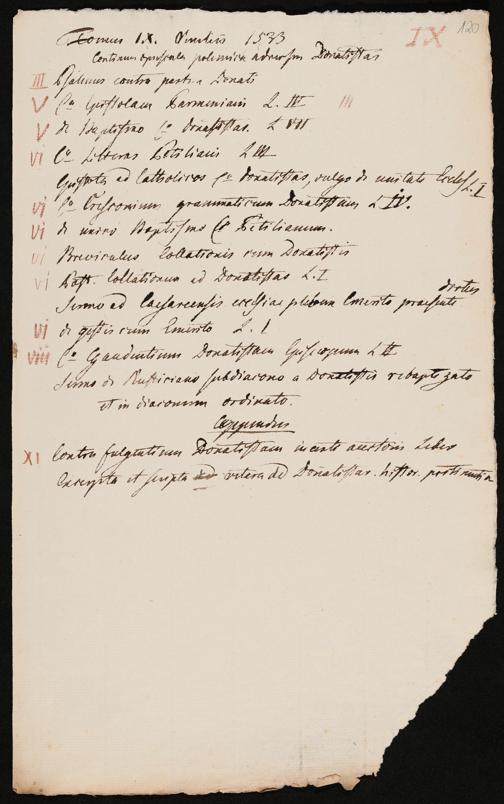 120
IX
Tomus IX. Venetiis 1533
Continens opuscula polemica adversus Donatistas
III Psalmus contra partem Donati
V Ca Epistolam Parmeniani L. III III
V de Baptismo Ca Donatistas. L VII
VI Ca Litteras Petiliani L III
Epistola ad Catholicos Ca Donatistas, vulgo de unitate Eccles L. I
VI Ca Cresconium grammaticum Donatistam L IV.
VI de unico Baptismo Ca Petilianum.
VI Breviculus Collationis cum Donatistis
VI Post Collationem ad Donatistas L. I
Sermo ad Caesareensis ecclesiae plebem Emerito praesente
VI de gestis cum Emerito L. I
VIII Ca Gaudentium Donatistam Episcopum L II
Sermo de Rusticiano subdiacono a Donatistis rebaptizato
et in diaconum ordinato.
Appendix
XI Contra fulgentium Donatistam incerti auctoris Liber
Excerpta et scripta vetera ad Donatistar. histor. pertinentia